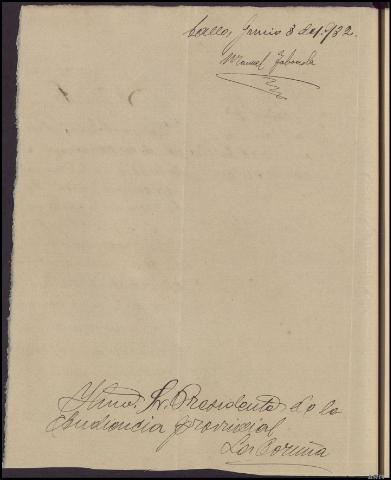 Junio 3 de 1.932.
Manuel
Ylmo. Sr. Presidente de la
Audiencia provincial
La Coruña